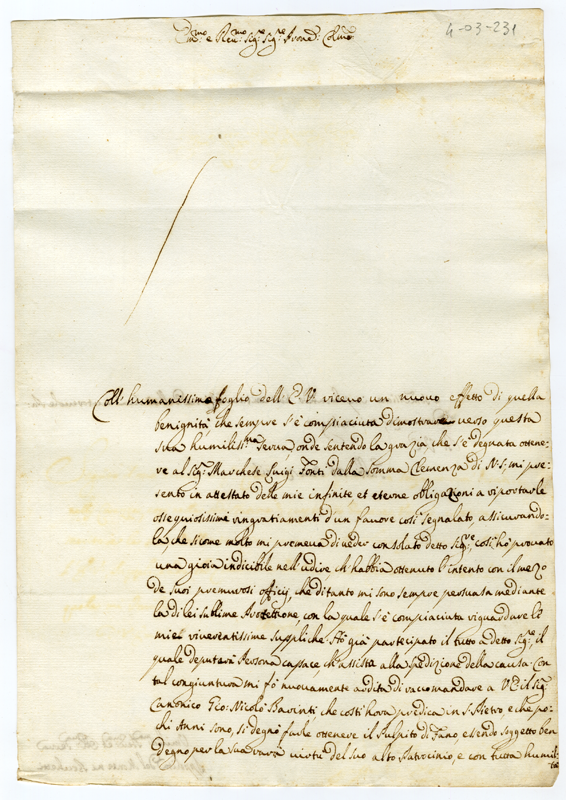 4-03-231
Em.mo e Rev.mo Sig.re Sig.re Pron.e Col.mo
Coll' humanissimo foglio dell' E.V. ricevo un nuovo effetto di quella
benignità che sempre s'è compiaciuta dimostrare verso questa
sua humiliss.ma serva, onde sentendo la grazia che s'è degnata ottene-
re al Sig.r Marchese Luigi Fonti dalla somma Clemenza di N.S. mi pre-
sento in attestato delle mie infinite, et eterne obligazioni a riportarle
ossequiosissimi ringratiamenti d'un favore così segnalato, assicurando-
la, che sicome molto mi premeva di veder consolato detto Sig.re, così hò provato
una gioia indicibile nell'udire, ch'habbia ottenuto l'intento con il mezo
de suoi premurosi officij, che di tanto mi sono sempre persuasa mediante
la di lei sublime Protettione, con la quale s'è compiaciuta riguardare le
mie riverentissime suppliche. Hò già partecipato il tutto a detto Sig.re, il
quale deputarà Persona capace, ch'assista alla spedizione della causa. Con
tal congiuntura mi fò nuovamente ardita di raccomandare a V.E. il Sig.r
Canonico Gio: Nicolò che costì hora predica in S. Pietro, e che po-
chi Anni sono, si degnò farle ottenere il Pulpito di Fano, essendo soggetto ben
degno per la sua rara virtù del suo alto Patrocinio, e con tutta humil-
tà